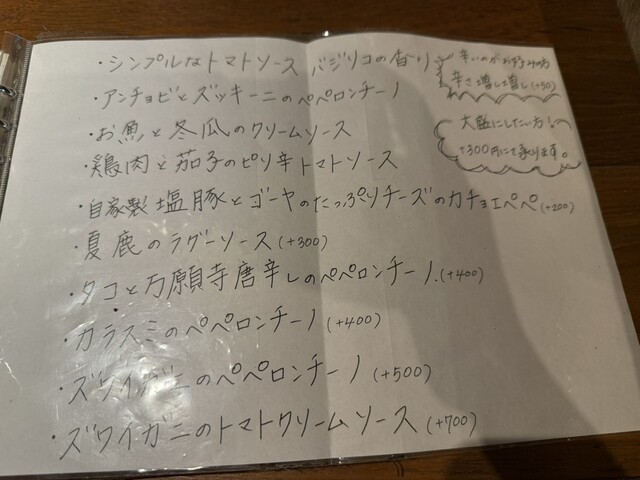 ・シンプルなトマトソース バジリコの香り
辛いのがお好みの方
辛さ増し増し(+50)
・アンチョビとズッキーニのペペロンチーノ
・お魚と冬瓜のクリームソース
大盛にしたい方!
+300円にて承ります。
・鶏肉と茄子のピリ辛トマトソース
・自家製塩豚とゴーヤのたっぷりチーズのカチョエペペ(+200)
・夏鹿のラグーソース(+300)
・タコと万願寺唐辛しのペペロンチーノ.(+400)
・カラスミのペペロンチーノ(+400)
・ズワイガニのペペロンチーノ(+500)
・ズワイガニのトマトクリームソース(+700)